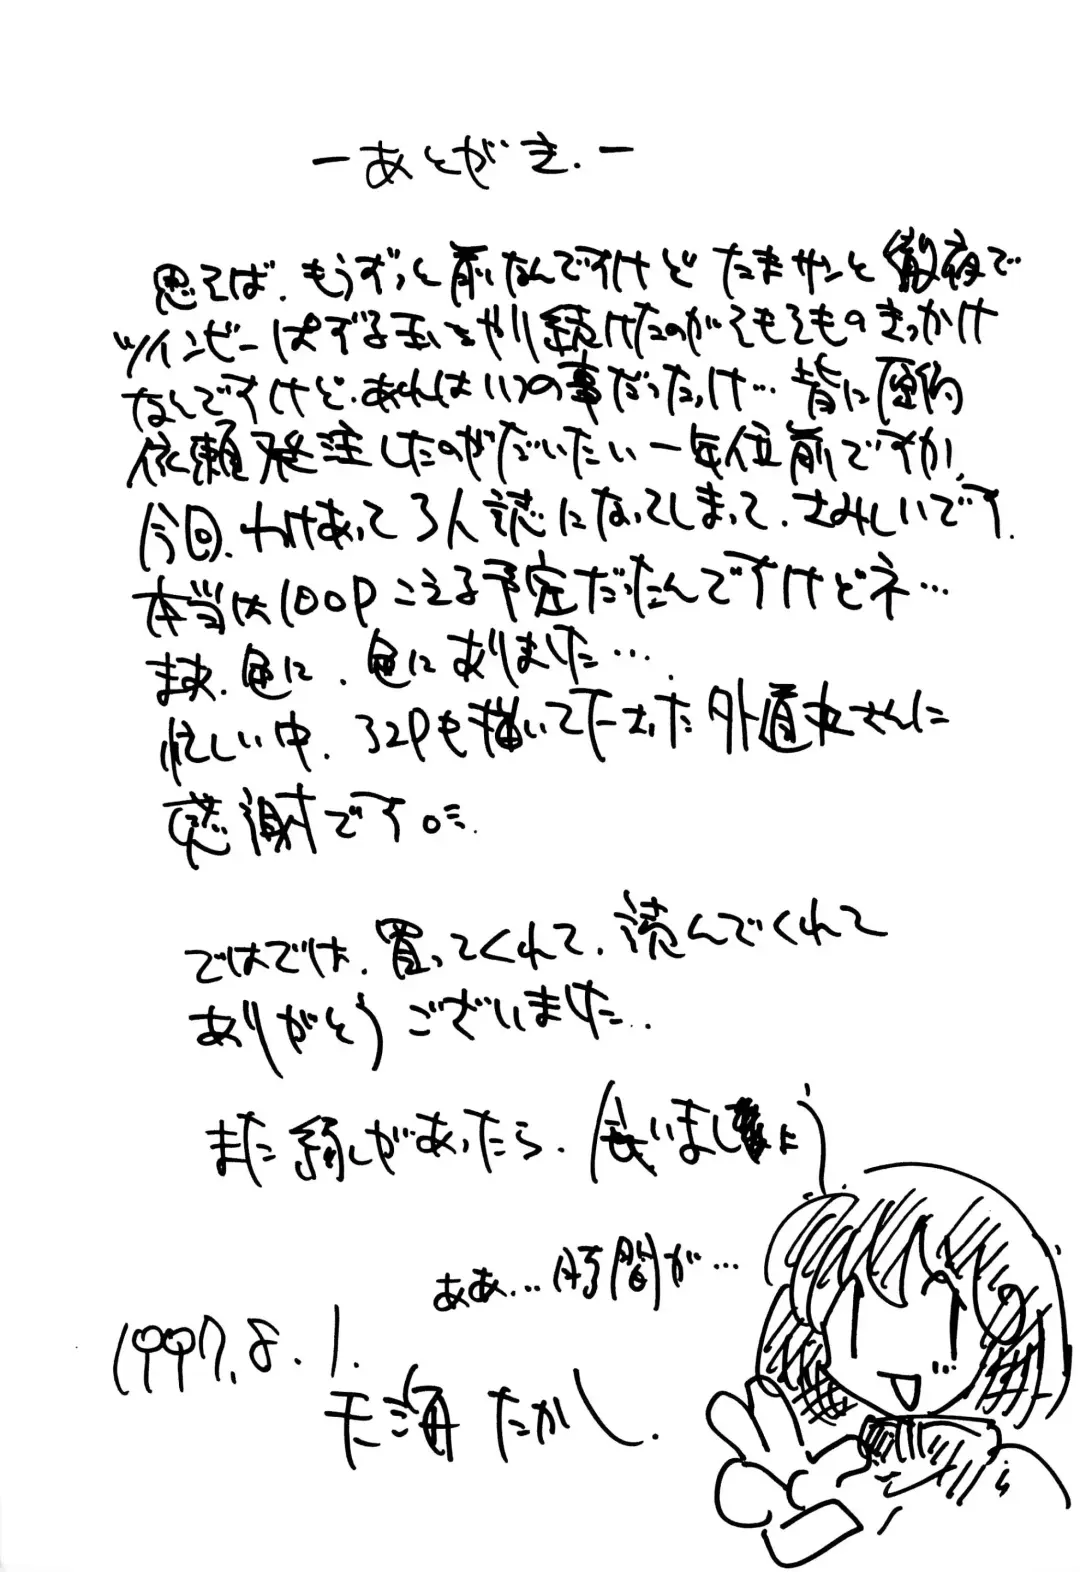 ーあとがき.ー
思えば、もうずっと前なんですけど たまサンと徹夜で
ツインビーぱずる玉をやり続けたのがそもそものきっかけ
なんですけど、あれはいつの事だったっけ… 皆に
依頼発注したのがだいたい一年位前ですか、
今回、わけあって3人誌になってしまって、さみしいです.
本当は100Pこえる予定だったんですけどネ…
まあ、色に、色にありました…
忙しい中、32Pも描いて下さった外道丸さんに
感謝です。
ではでは、買ってくれて、読んでくれて
ありがとうございました..
また 縁があったら、会いましょう
ああ… 時間が…
1997.8.1.
天海 たかし.